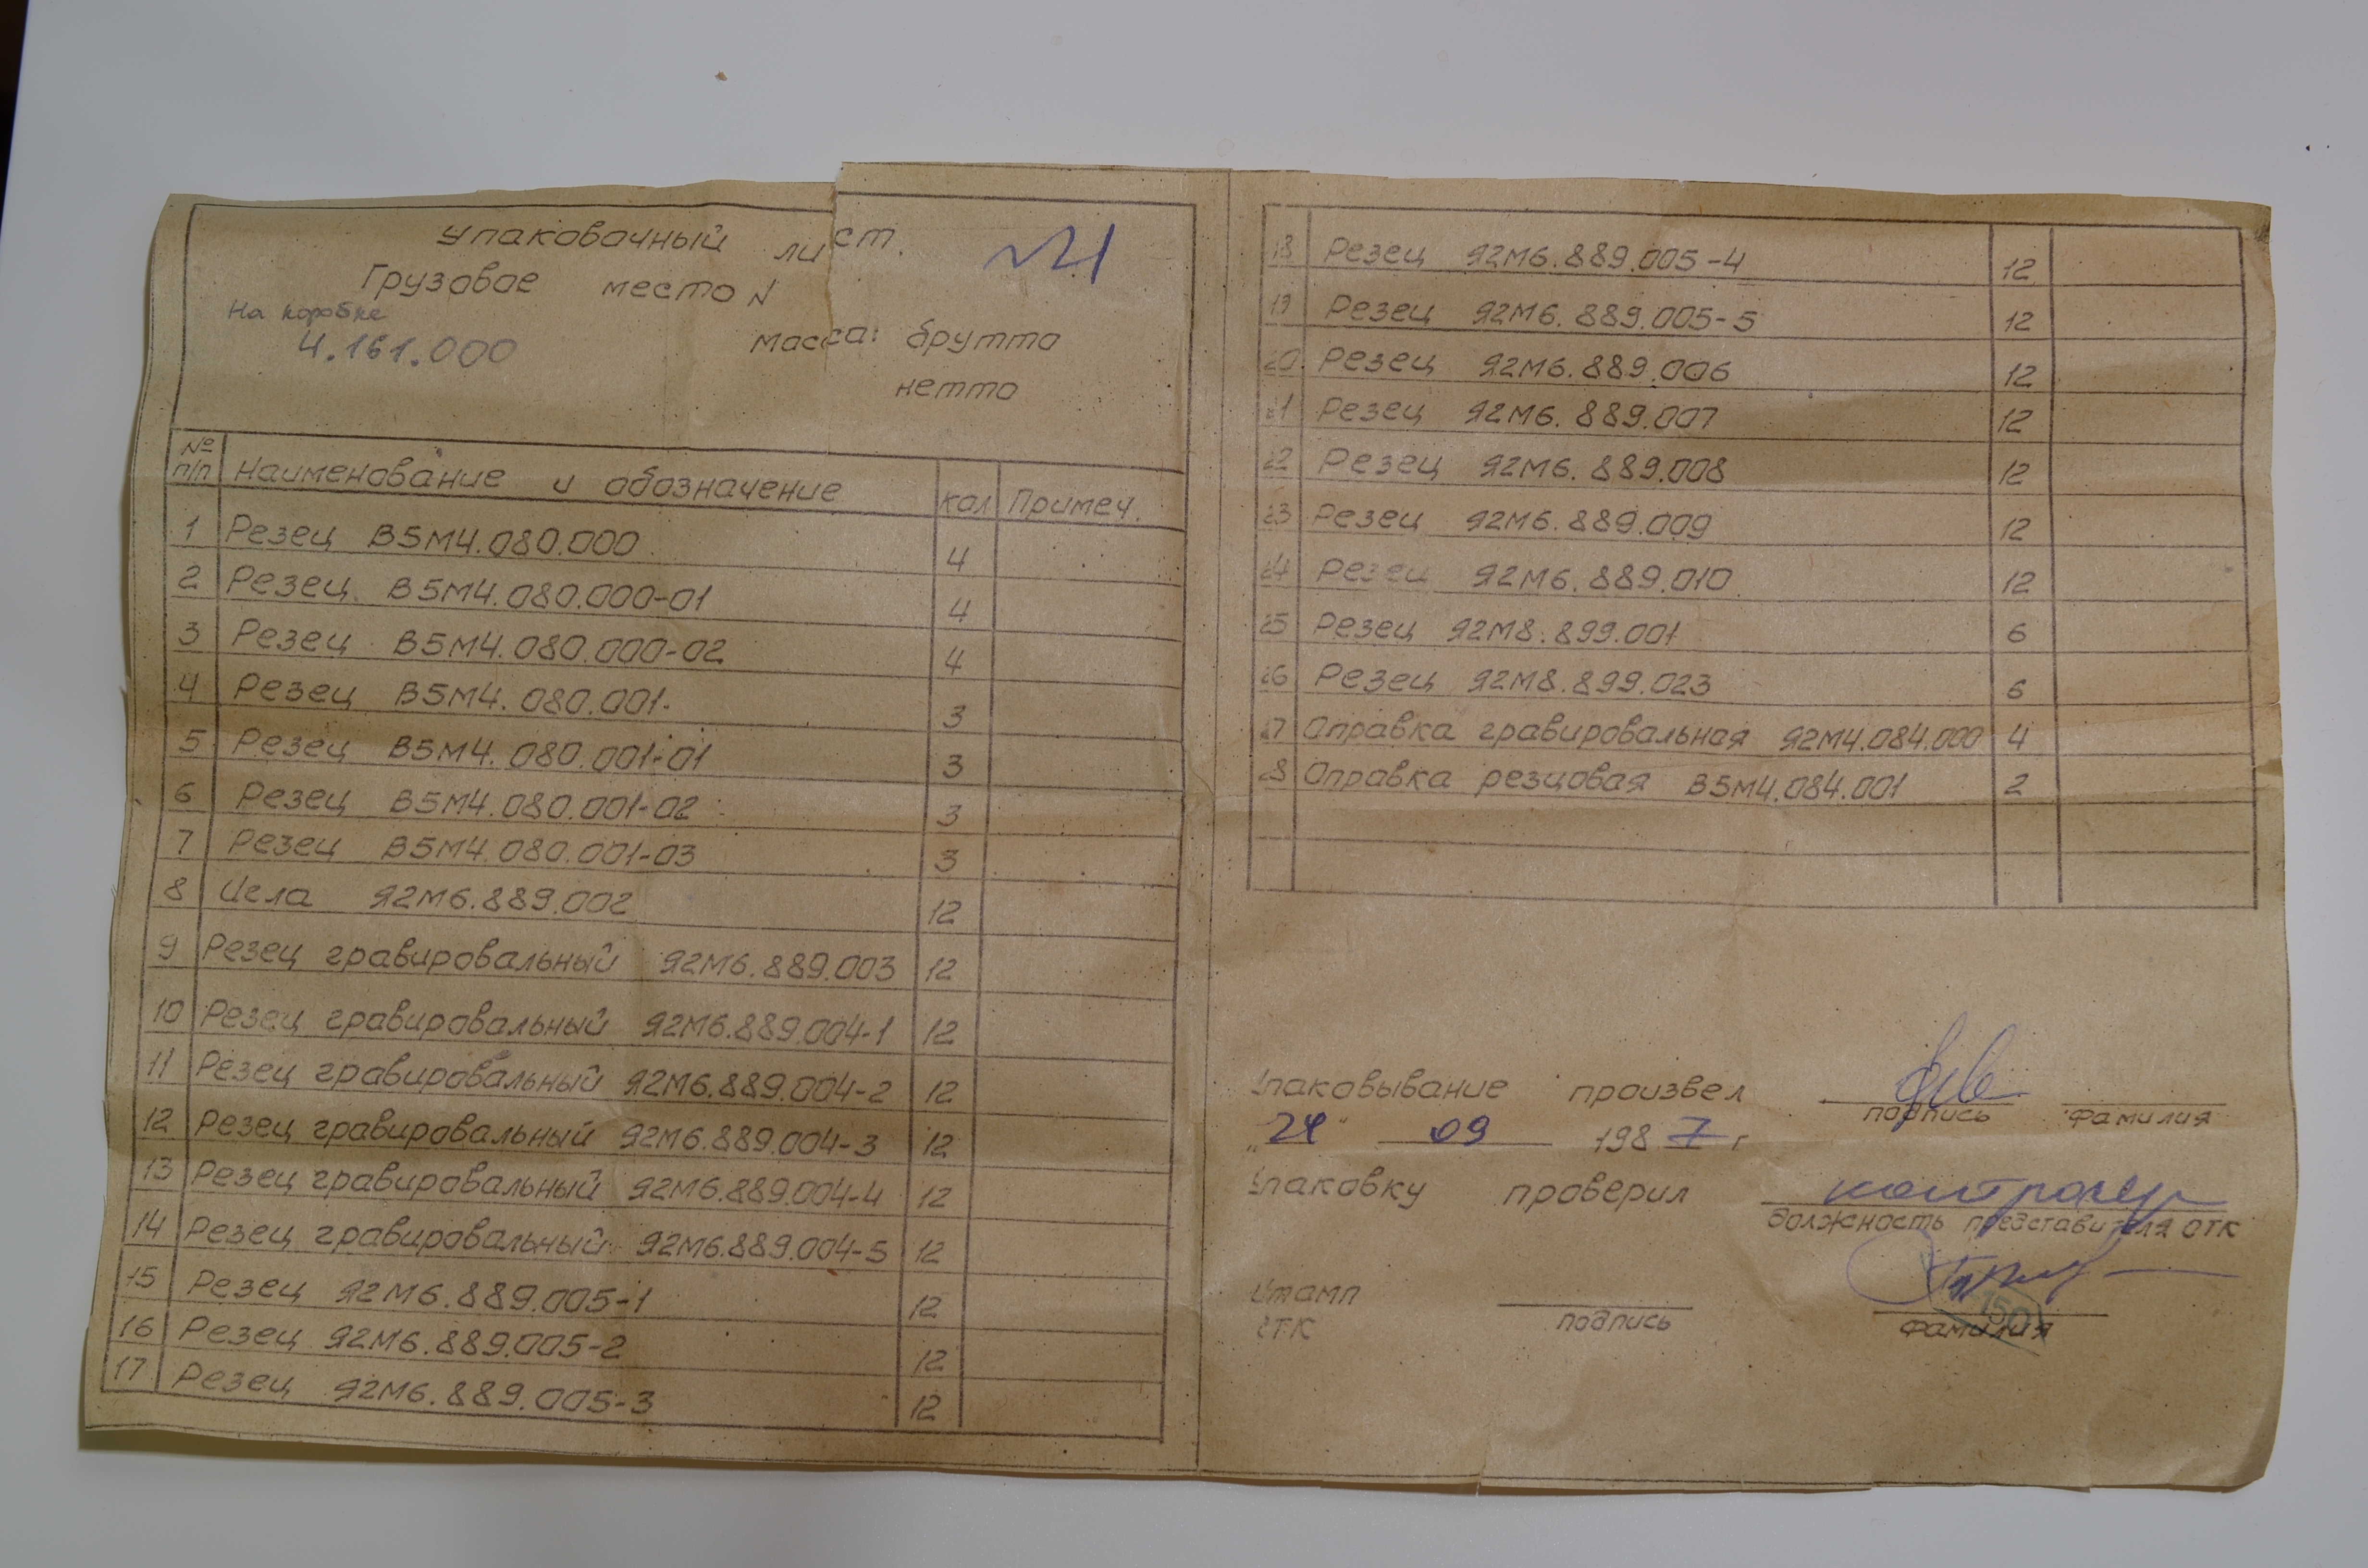 Упаковочный лист.
№1
Грузовое место N
На коробке
4.161.000
масса: брутто
нетто
№ п/п Наименование и обозначение кол Примеч.
1 Резец В5М4.080.000 4
2 Резец В5М4.080.000-01 4
3 Резец В5М4.080.000-02 4
4 Резец В5М4.080.001 3
5 Резец В5М4.080.001-01 3
6 Резец В5М4.080.001-02 3
7 Резец В5М4.080.001-03 3
8 Игла Я2М6.889.002 12
9 Резец гравировальный Я2М6.889.003 12
10 Резец гравировальный Я2М6.889.004-1 12
11 Резец гравировальный Я2М6.889.004-2 12
12 Резец гравировальный Я2М6.889.004-3 12
13 Резец гравировальный Я2М6.889.004-4 12
14 Резец гравировальный Я2М6.889.004-5 12
15 Резец Я2М6.889.005-1 12
16 Резец Я2М6.889.005-2 12
17 Резец Я2М6.889.005-3 12
18 Резец Я2М6.889.005-4 12
19 Резец Я2М6.889.005-5 12
20 Резец Я2М6.889.006 12
21 Резец Я2М6.889.007 12
22 Резец Я2М6.889.008 12
23 Резец Я2М6.889.009 12
24 Резец Я2М6.889.010 12
25 Резец Я2М8.899.001 6
26 Резец Я2М8.899.023 6
27 Оправка гравировальная Я2М4.084.000 4
28 Оправка резцовая В5М4.084.001 2
Упаковывание произвел
подпись фамилия
„24" 09 1987 г
Упаковку проверил контролер
должность представителя ОТК
Штамп
ОТК
подпись фамилия
150